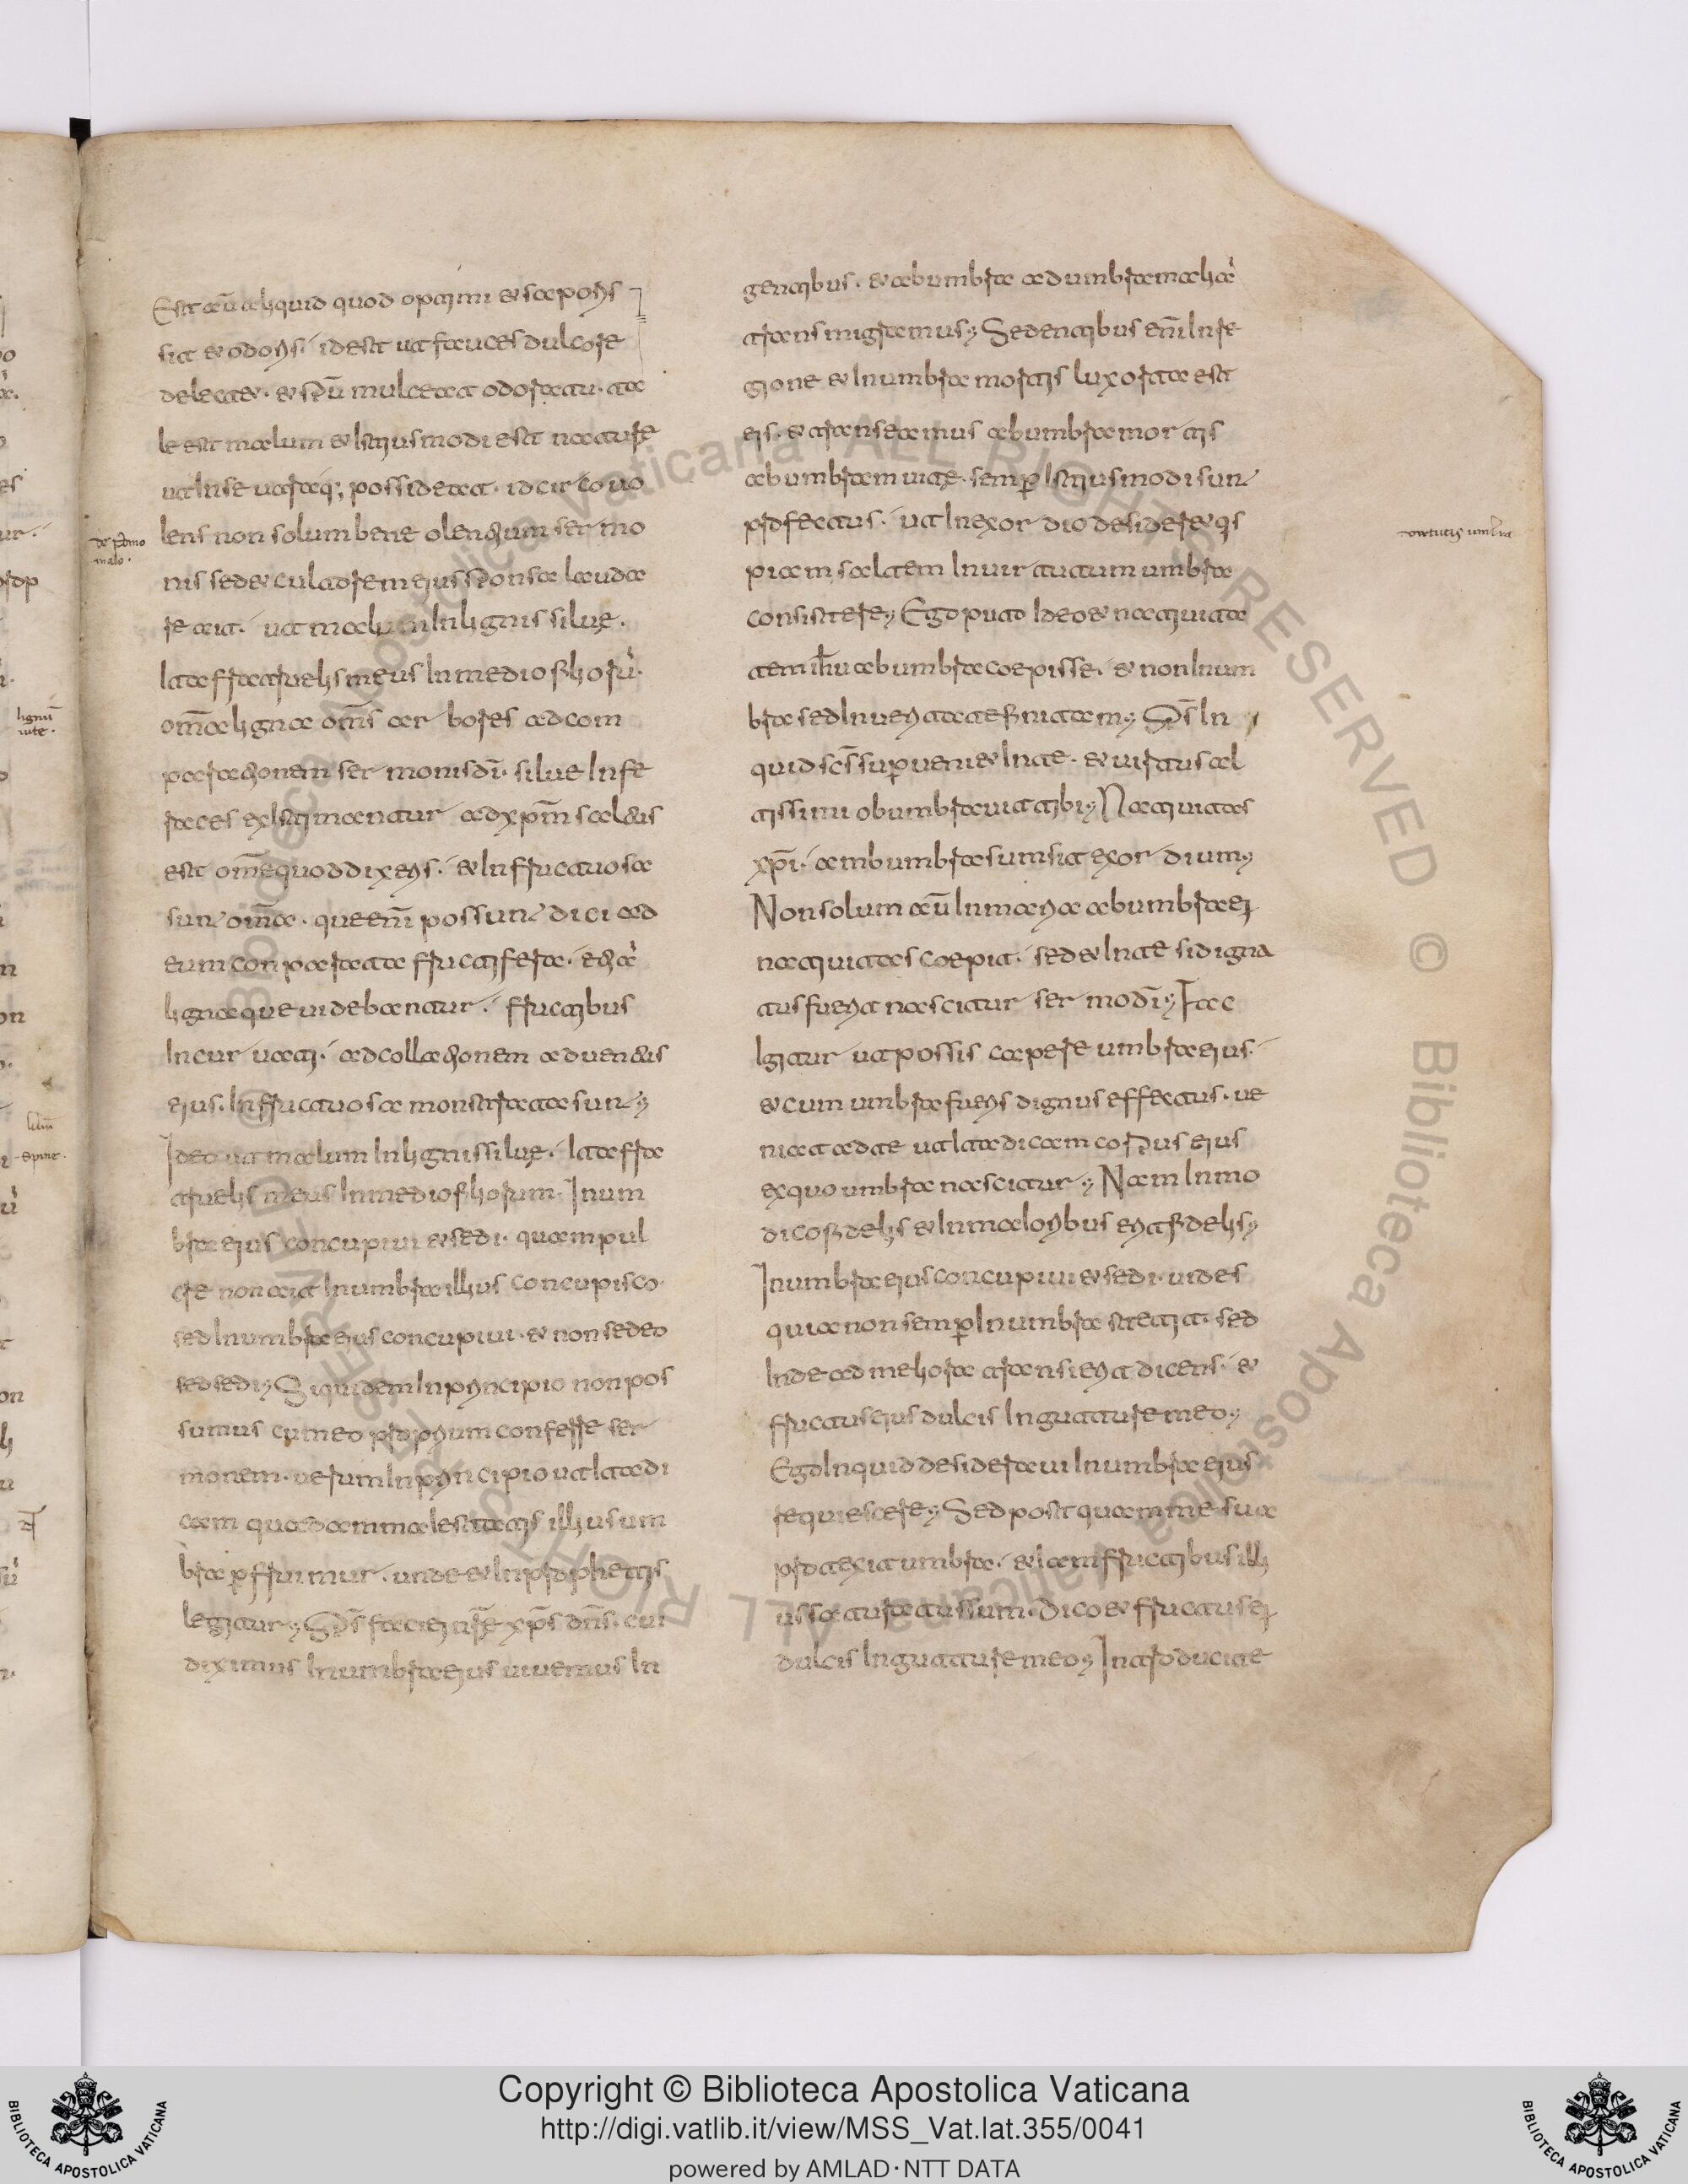 Est aū aliquid quod optimi et saporis
sit et odoris. idest ut fauces dulcore
delectet. et spm̄ mulceat odoratu. ta
le est malum et istiusmodi est nature
ut in se utraq; possideat. idcirco uo
de pomo
malo.
lens non solum bene olentium sermo
nis sed et culcorem eius sponsa lauda
re ait. ut malum in lignis silue.
ita fratruelis meus in medio filiorū.
om̄a ligna om̄s arbores ad com
parationem sermonis dī. silue infe
races existimantur ad xpm̄ saltus
est om̄e quod dixeris. et infructuosa
sunt om̄a. que enī possunt dici ad
eum conparata fructifera. etiā
ligna que uidebantur. fructibus
incuruati. ad collationem aduentus
eius. infructuosa monstrata sunt.
Ideo ut malum in lignis silue. ita fra
truelis meus in medio filiorum. In um
bra eius concupiui et sedi. quam pul
cre non ait in umbra illius concupisco.
sed in umbra eius concupiui. et non sedeo
sed sedi. Siquidem in principio non pos
sumus cum eo proprium conferre ser
monem. uerum in principio ut ita di
cam quadam maiestatis illius um
bra p̄fruimur. unde et in prophetis
legitur. Sp̄s faciei nr̄e xp̄s dn̄s. cui
diximus in umbra eius uiuemus in
gentibus. et ab umbra ad umbram aliā
transmigramus. Sedentibus enī in re
gione et in umbra mortis lux orta est
eis. et transeamus ab umbra mortis
ab umbram uite. semp̄ istiusmodi sunt
profectus. ut in exordio desideret qs
piam saltem in uirtutum umbra
uirtutis umbra
consistere. Ego puto ideo et natiuita
tem ih̄u ab umbra coepisse. et non in um
bra sed in ueritate finitam. Sp̄s in
quid sc̄s sup̄ueniet in te. et uirtus al
tissimi obumbrauit tibi. Natiuitas
xp̄i. am bumbra sumsit exordium.
Non solum aū in maria ab umbra ei
natiuitas coepit. sed et in te si digna
tus fuerit nascitur sermo dī. Fac
igitur ut possis capere umbra eius.
et cum umbra fueris dignus effectus. ue
niat ad te ut ita dicam corpus eius
ex quo umbra nascitur. Nam in mo
dico fidelis et in maioribus erit fidelis.
In umbra eius concupiui et sedi. uides
quia non semp̄ in umbra stetit. sed
inde ad meliora transierit dicens. et
fructus eius dulcis in gutture meo.
Ego inquid desideraui in umbra eius
requiescere. Sed postquam me sua
protexit umbra. etiam fructibus illi
us saturatus sum. dico et fructus ei
dulcis in gutture meo. Introducite
Copyright © Biblioteca Apostolica Vaticana
http://digi.vatlib.it/view/MSS_Vat.lat.355/0041
powered by AMLAD·NTT DATA
BIBLIOTECA APOSTOLICA VATICANA
BIBLIOTECA APOSTOLICA VATICANA